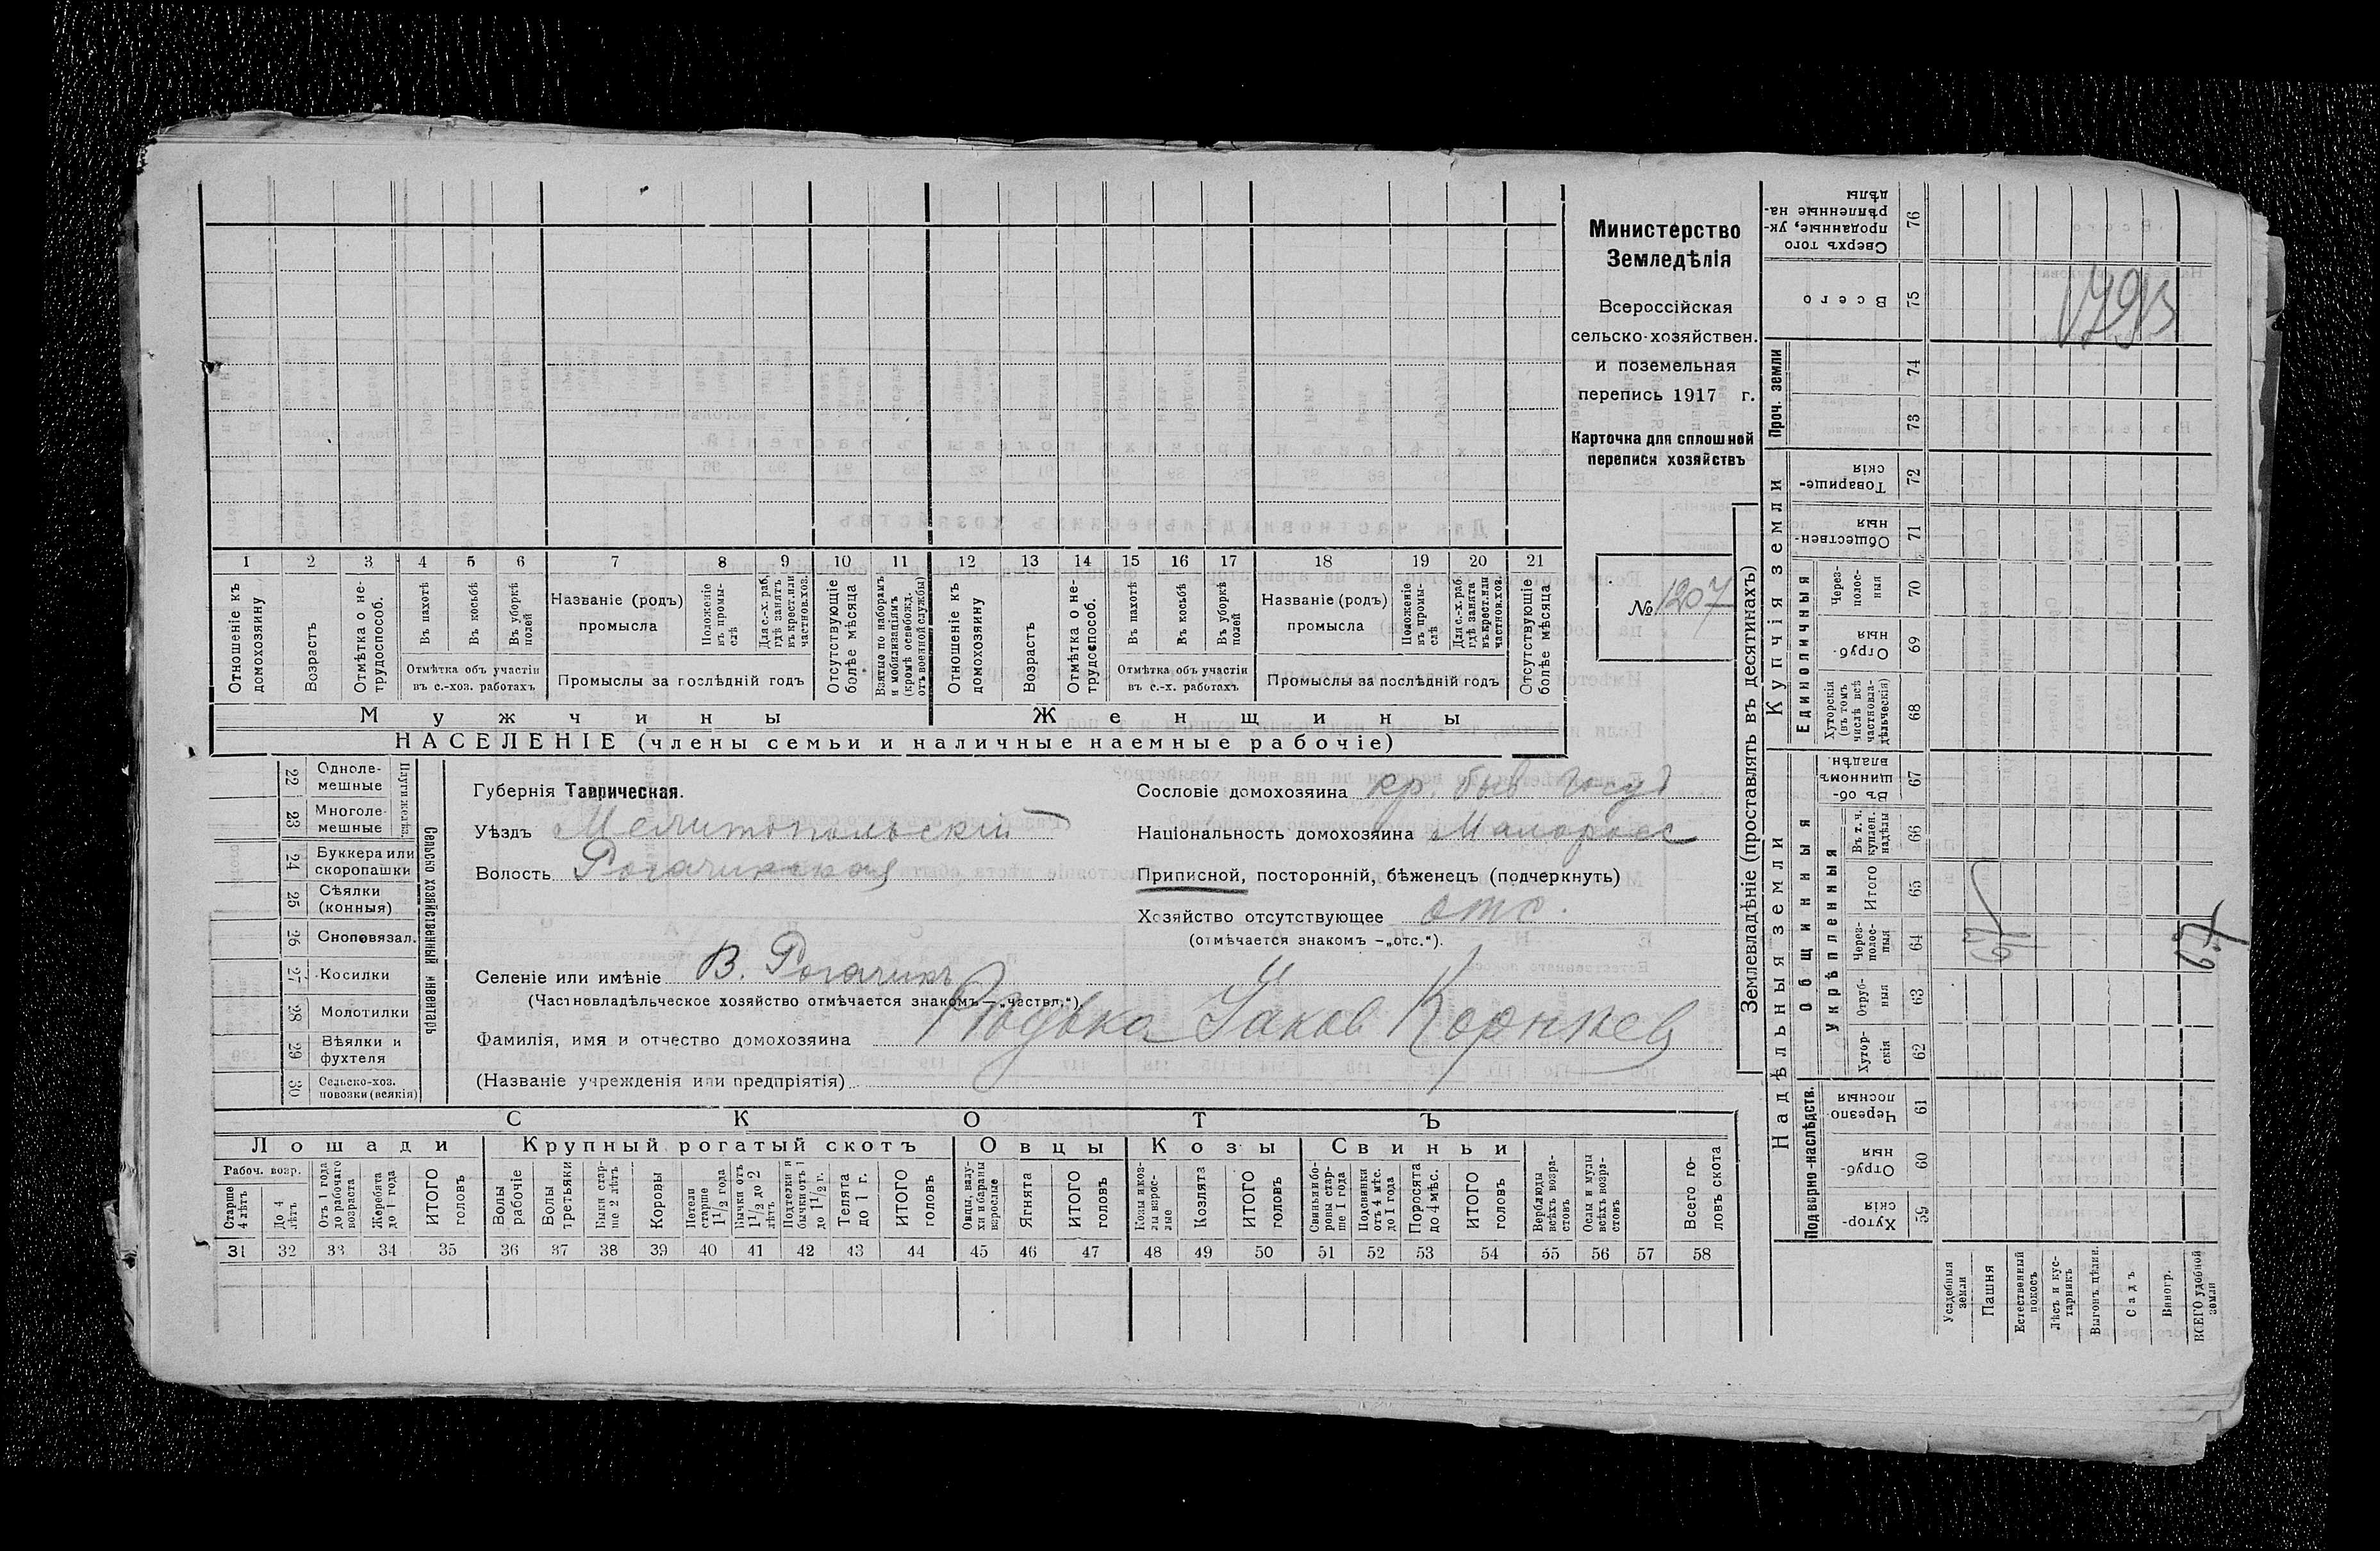 Министерство
Земледѣлія
Всероссійская
сельско-хозяйствен.
и поземельная
перепись 1917 г.
Карточка для сплошной
переписи хозяйствъ
№ 1207
1 2 3 4 5 6 7 8 9 10 11 12 13 14 15 16 17 18 19 20 21
Отношеніе къ домохозяину
Возрастъ
Отмѣтка о не-трудоспособ.
Въ пахотѣ
Въ косьбѣ
Въ уборкѣ полей
Отмѣтка объ участіи
въ с.-хоз. работахъ
Названіе (родъ)
промысла
Положеніе въ промы-слѣ
Для с.-х. раб. гдѣ занятъ въ крест. или частнов. хоз.
Промыслы за послѣдній годъ
Отсутствующіе болѣе мѣсяца
Взятые по наборамъ и мобилизаціямъ (кромѣ освобожд. отъ военной службы)
Отношеніе къ домохозяину
Возрастъ
Отмѣтка о не-трудоспособ.
Въ пахотѣ
Въ косьбѣ
Въ уборкѣ полей
Отмѣтка объ участіи
въ с.-х. работахъ
Названіе (родъ)
промысла
Положеніе въ промы-слѣ
Для с.-х. раб. гдѣ занята въ крест. или частнов. хоз.
Промыслы за послѣдній годъ
Отсутствующіе болѣе мѣсяца
Мужчины
Женщины
НАСЕЛЕНІЕ (члены семьи и наличные наемные рабочіе)
22 Одноле-мешные
23 Многоле-мешные
Плуги желѣз.
24 Буккера или скоропашки
25 Сѣялки (конныя)
26 Сноповязал.
27 Косилки
28 Молотилки
29 Вѣялки и фухтеля
30 Сельско-хоз. повозки (всякія)
Сельско хозяйственный инвентарь
Губернія Таврическая.
Уѣздъ Мелитопольскій
Волость Рогачикская
Сословіе домохозяина кр. быв. госуд
Національность домохозяина Малоросс
Приписной, посторонній, бѣженецъ (подчеркнуть)
Хозяйство отсутствующее отс.
(отмѣчается знакомъ —„отс.“).
Селеніе или имѣніе В. Рогачикъ
(Частновладѣльческое хозяйство отмѣчается знакомъ—„частвл.“).
Фамилія, имя и отчество домохозяина Яков Корнѣев
(Названіе учрежденія или предпріятія)
СКОТЪ
Лошади
Крупный рогатый скотъ
Овцы
Козы
Свиньи
Рабоч. возр.
Старше 4 лѣтъ
До 4 лѣтъ
Отъ 1 года до рабочаго возраста
Жеребята до 1 года
ИТОГО головъ
Волы рабочіе
Волы третьяки
Быки стар-ше 2 лѣтъ
Коровы
Нетели старше 1 1/2 года
Бычки отъ 1 1/2 до 2 лѣтъ
Подтелки и бычки отъ 1 до 1 1/2 г.
Телята до 1 г.
ИТОГО головъ
Овцы, валу-хи и бараны взрослые
Ягнята
ИТОГО головъ
Козы и коз-лы взрос-лые
Козлята
ИТОГО головъ
Свиньи и бо-ровы стар-ше 1 года
Подсвинки отъ 4 мѣс. до 1 года
Поросята до 4 мѣс.
ИТОГО головъ
Верблюды всѣхъ возра-стовъ
Ослы и мулы всѣхъ возра-стовъ
Всего го-ловъ скота
31 32 33 34 35 36 37 38 39 40 41 42 43 44 45 46 47 48 49 50 51 52 53 54 55 56 57 58
Землевладѣніе (проставлять въ десятинахъ)
Надѣльныя земли
Купчія земли
Проч. земли
Подворно-наслѣдств.
Общинныя
Укрѣпленныя
Единоличныя
Хутор-скія 59
Отруб-ныя 60
Черезпо-лосныя 61
Хутор-скія 62
Отруб-ныя 63
Через-полос-ныя 64
Итого 65
Въ т. ч. куплен. надѣлы 66
Въ об-щинномъ владѣн. 67
Хуторскія (въ томъ числѣ всѣ частновла-дѣльческія) 68
Отруб-ныя 69
Через-полос-ныя 70
Обществен-ныя 71
Товарище-скія 72
73
74
Всего 75
Сверхъ того проданные, ук-рѣпленные на-дѣлы 76
Усадебныя земли
Пашня
Естественный покосъ
Лѣсъ и кус-тарникъ
Выгонъ, цѣлин.
Садъ
Виногр.
ВСЕГО удобной земли